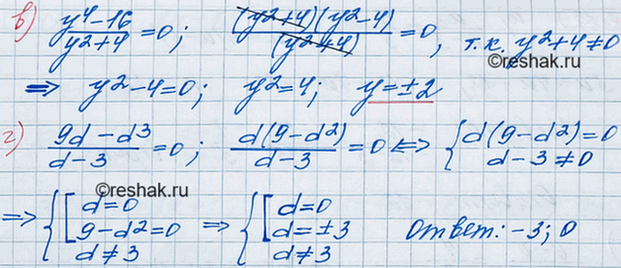 в) (y⁴-16)/(y²+4) = 0; ((y²+4)(y²-4))/(y²+4) = 0, т.к. y²+4≠0
©reshak.ru
⇒ y²-4=0; y²=4; y=±2
г) (9d-d³)/(d-3) = 0; (d(9-d²))/(d-3) = 0 ⇔ { d(9-d²)=0
d-3≠0
©reshak.ru
⇒ { [ d=0 ⇒ { [ d=0
9-d²=0 d=±3 Ответ: -3; 0
d≠3 d≠3